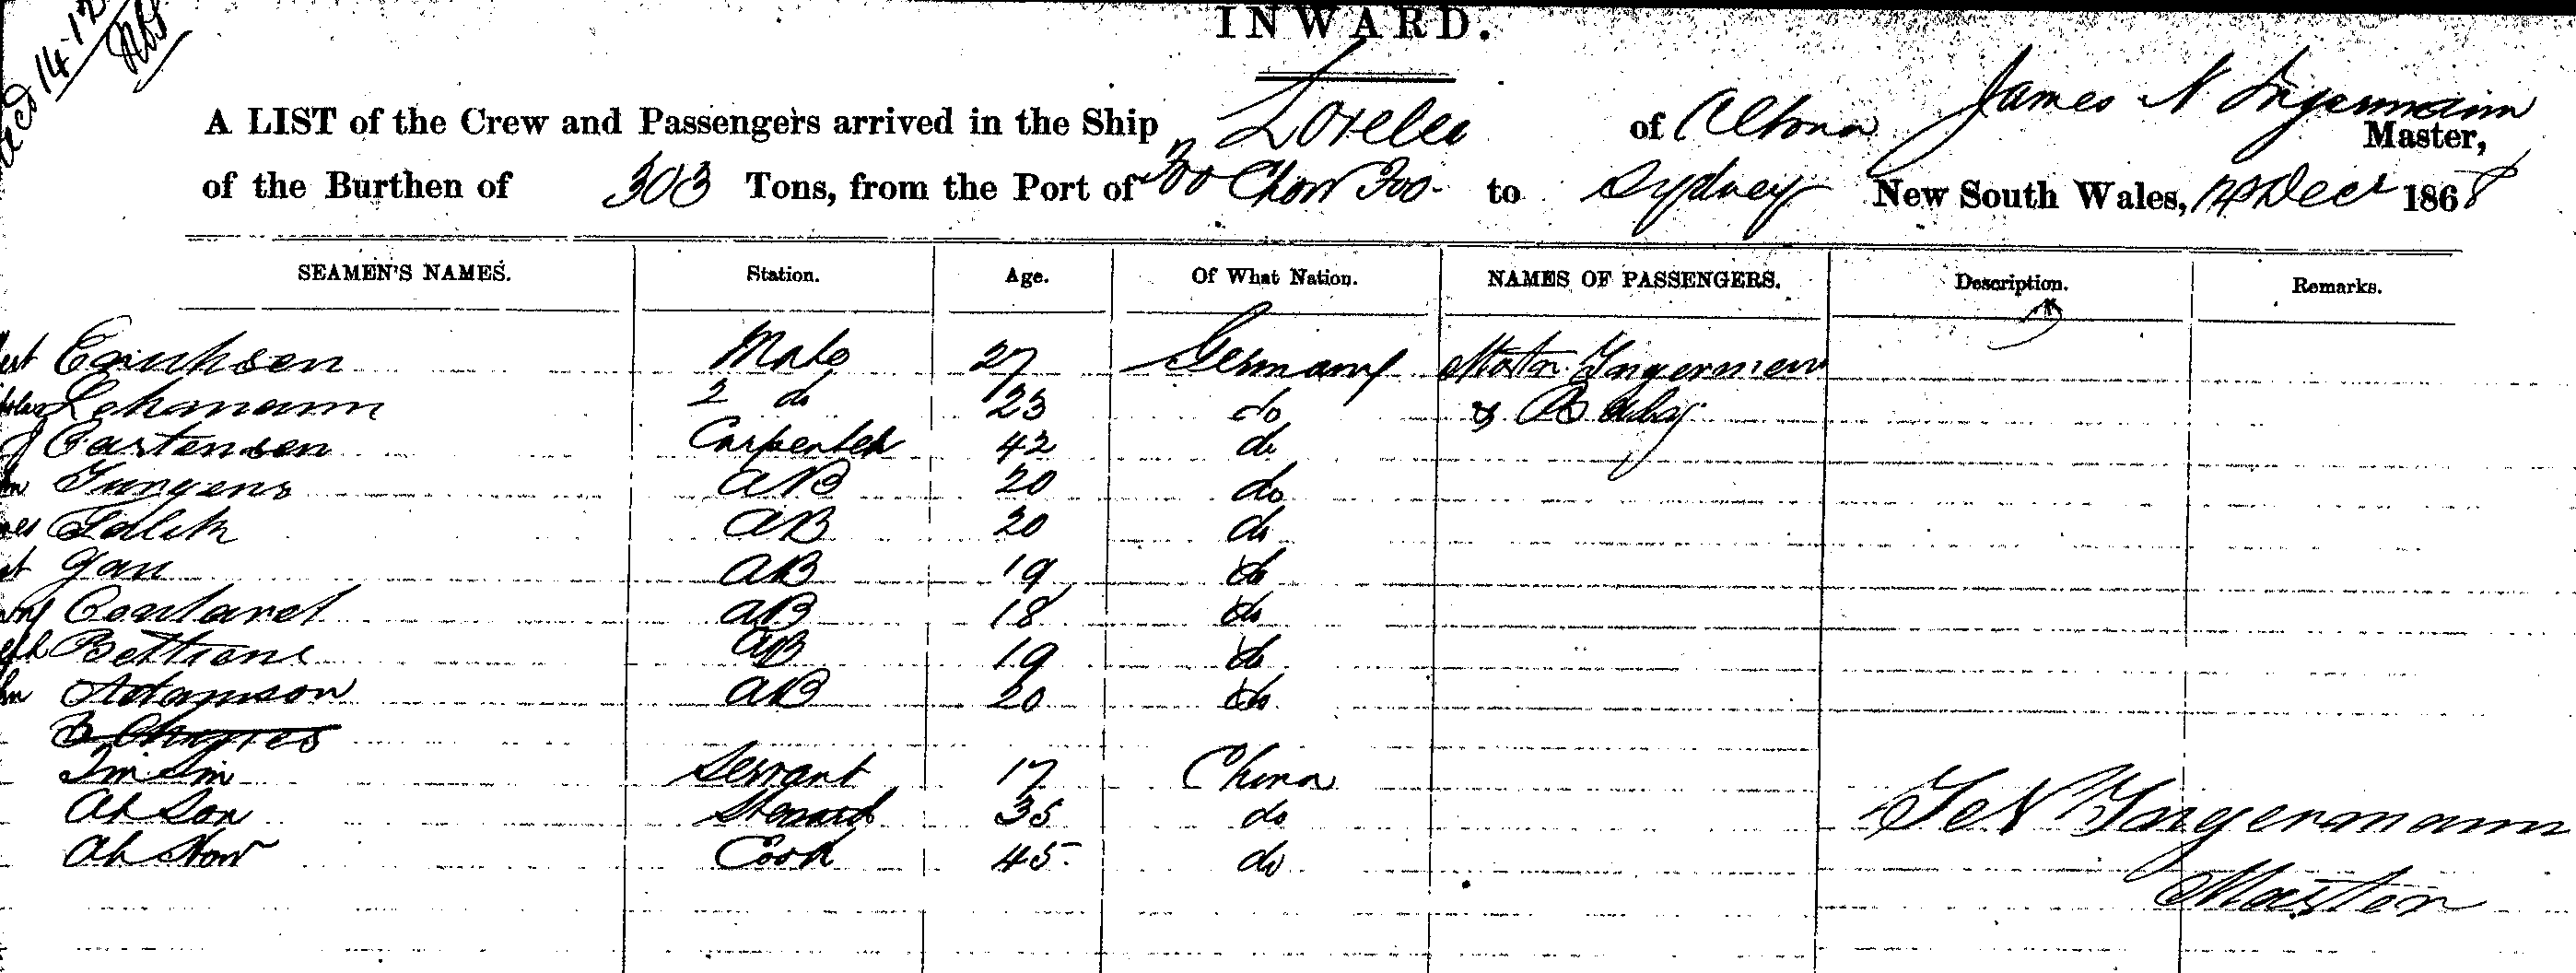 INWARD.
14 12
A LIST of the Crew and Passengers arrived in the Ship Lorelei of Altona James N Ingermann Master,
of the Burthen of 303 Tons, from the Port of Foo Chow Foo to Sydney New South Wales, 14 Decr 1868
SEAMEN'S NAMES. Station. Age. Of What Nation. NAMES OF PASSENGERS. Description. Remarks.
Erichsen Mate 27 Germany Ingermann
Lehmann 2 do 23 do & Baby
Carstensen Carpenter 42 do
Jurgens AB 20 do
Falck AB 20 do
Jan AB 19 do
AB 18 do
AB 19 do
Adamson AB 20 do
Servant 17 China
Ah Son Steward 35 do
Ah How Cook 45 do
Ingermann
Master